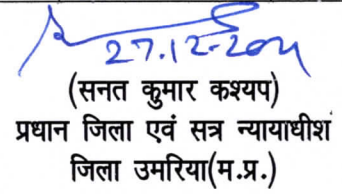 27.12-2024
(सनत कुमार कश्यप)
प्रधान जिला एवं सत्र न्यायाधीश
जिला उमरिया(म.प्र.)